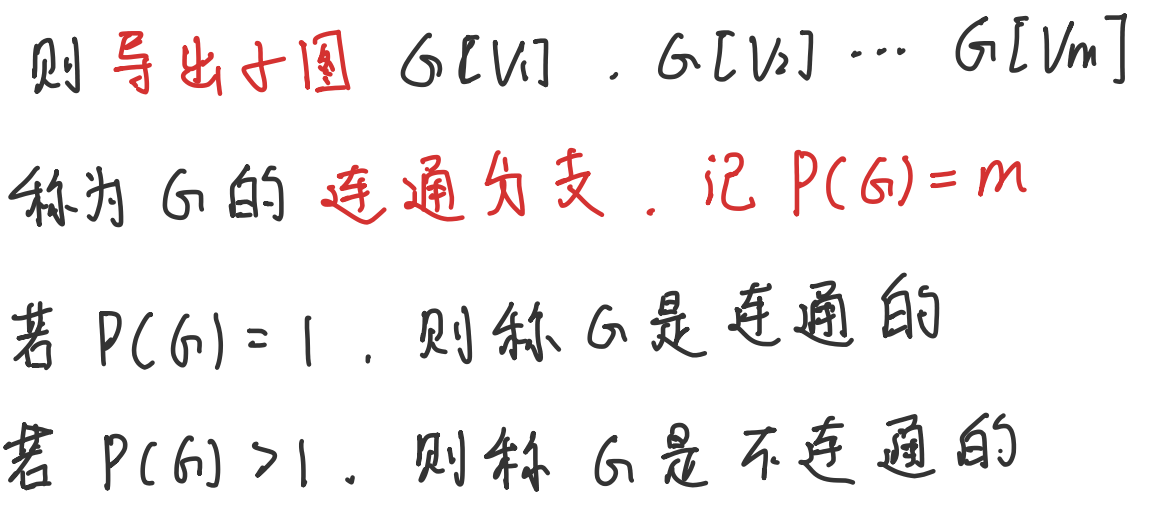 则导出子图 G[V₁] . G[V₂] ··· G[Vm]
称为 G 的连通分支 . 记 P(G) = m
若 P(G) = 1 . 则称 G 是连通的
若 P(G) > 1 . 则称 G 是不连通的